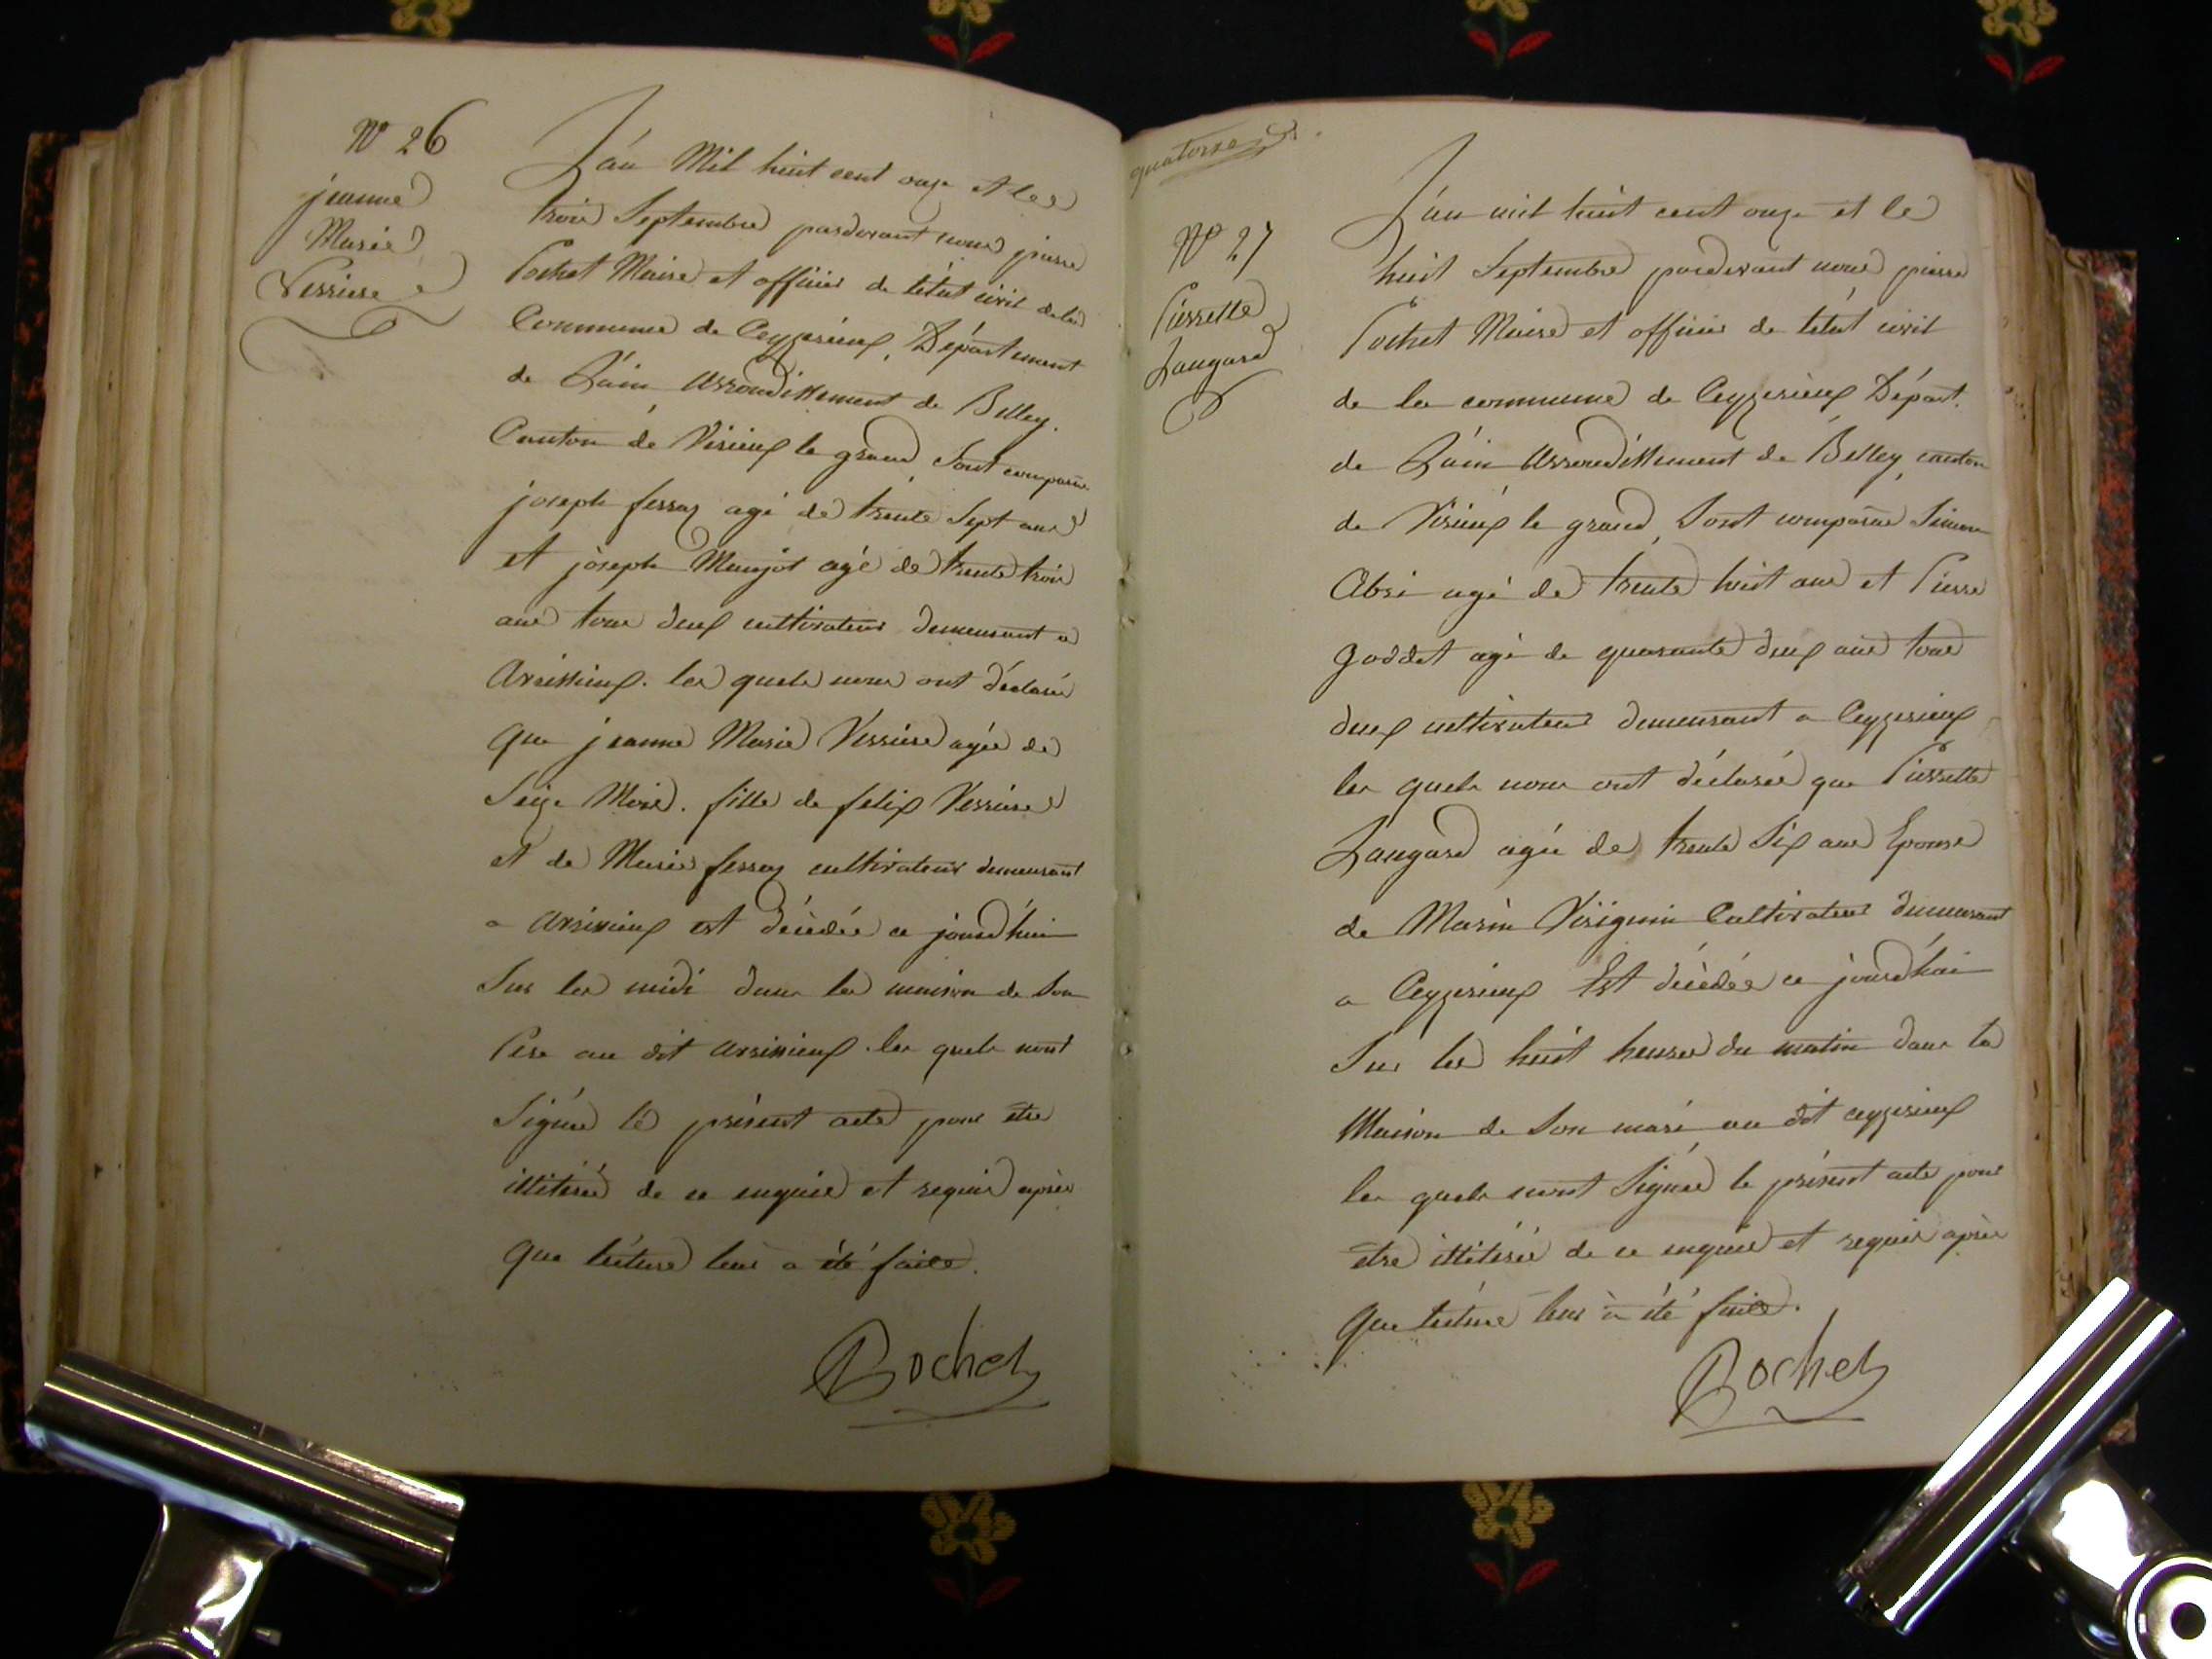 N° 26
jeanne
Marie
Verriere
L'an Mil huit cent onze et le
trois Septembre pardevant nous pierre
Pochet Maire et officier de l'état civil de la
Commune de Ceyzerieux, Département
de L'ain, arrondissement de Belley.
Canton de Virieux le grand, Sont comparus
joseph ferraz agé de trente Sept ans
et joseph Maujot agé de trente trois
ans tous deux cultivateurs demeurant a
les quels nous ont déclaré
que jeanne Marie Verriere agée de
Seize Mois. fille de felix Verriere
et de Marie ferraz cultivateur demeurant
a est décédée ce jourd'hui
Sur les midi dans la maison de Son
Pere au dit les quels n'ont
Signée le présent acte pour etre
illitérés de ce enquis et requis après
que lécture leur a été faite.
Pochet
quatorze
N° 27
Pierrette
Laugard
L'an mil huit cent onze et le
huit Septembre pardevant nous pierre
Pochet Maire et officier de l'état civil
de la commune de Ceyzerieux Départ.
de L'ain arrondissement de Belley, canton
de Virieux le grand, Sont comparus Simon
Abri agé de trente huit ans et Pierre
goddet agé de quarante deux ans tous
deux cultivateurs demeurant a Ceyzerieux
les quels nous ont déclaré que Pierrette
Laugard agée de trente Six ans Epouse
de Marin Virignin Cultivateur demeurant
a Ceyzerieux Est décédée ce jourd'hui
Sur les huit heures du matin dans la
Maison de Son mari au dit ceyzerieux
les quels n'ont Signée le présent acte pour
etre illitérés de ce enquis et requis après
que lécture leur à été faite.
Pochet